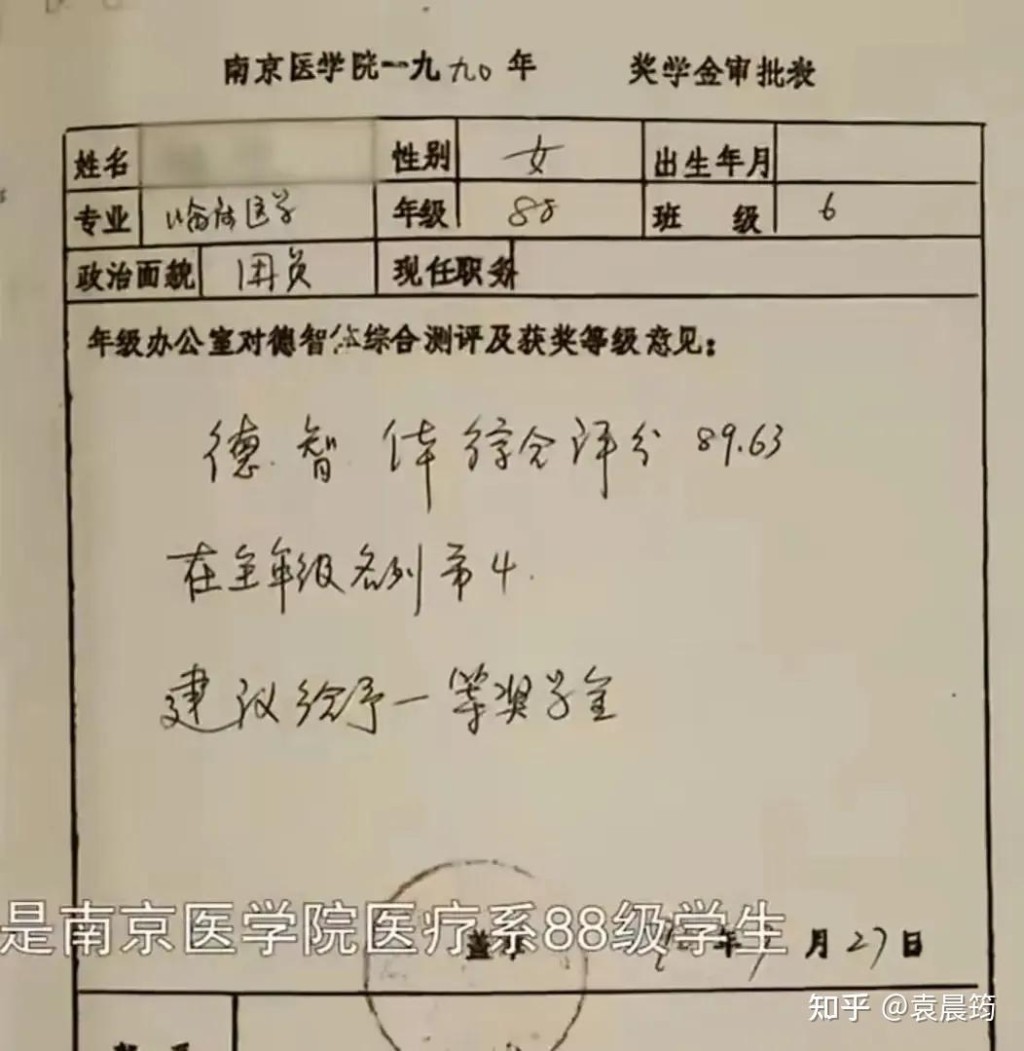 南京医学院一九九〇年 奖学金审批表
姓名 性别 女 出生年月
专业 临床医学 年级 88 班级 6
政治面貌 团员 现任职务
年级办公室对德智体综合测评及获奖等级意见：
德.智.体综合评分 89.63
在全年级名列第4.
建议给予一等奖学金
是南京医学院医疗系88级学生
盖章 年 月27日
知乎 @袁晨筠